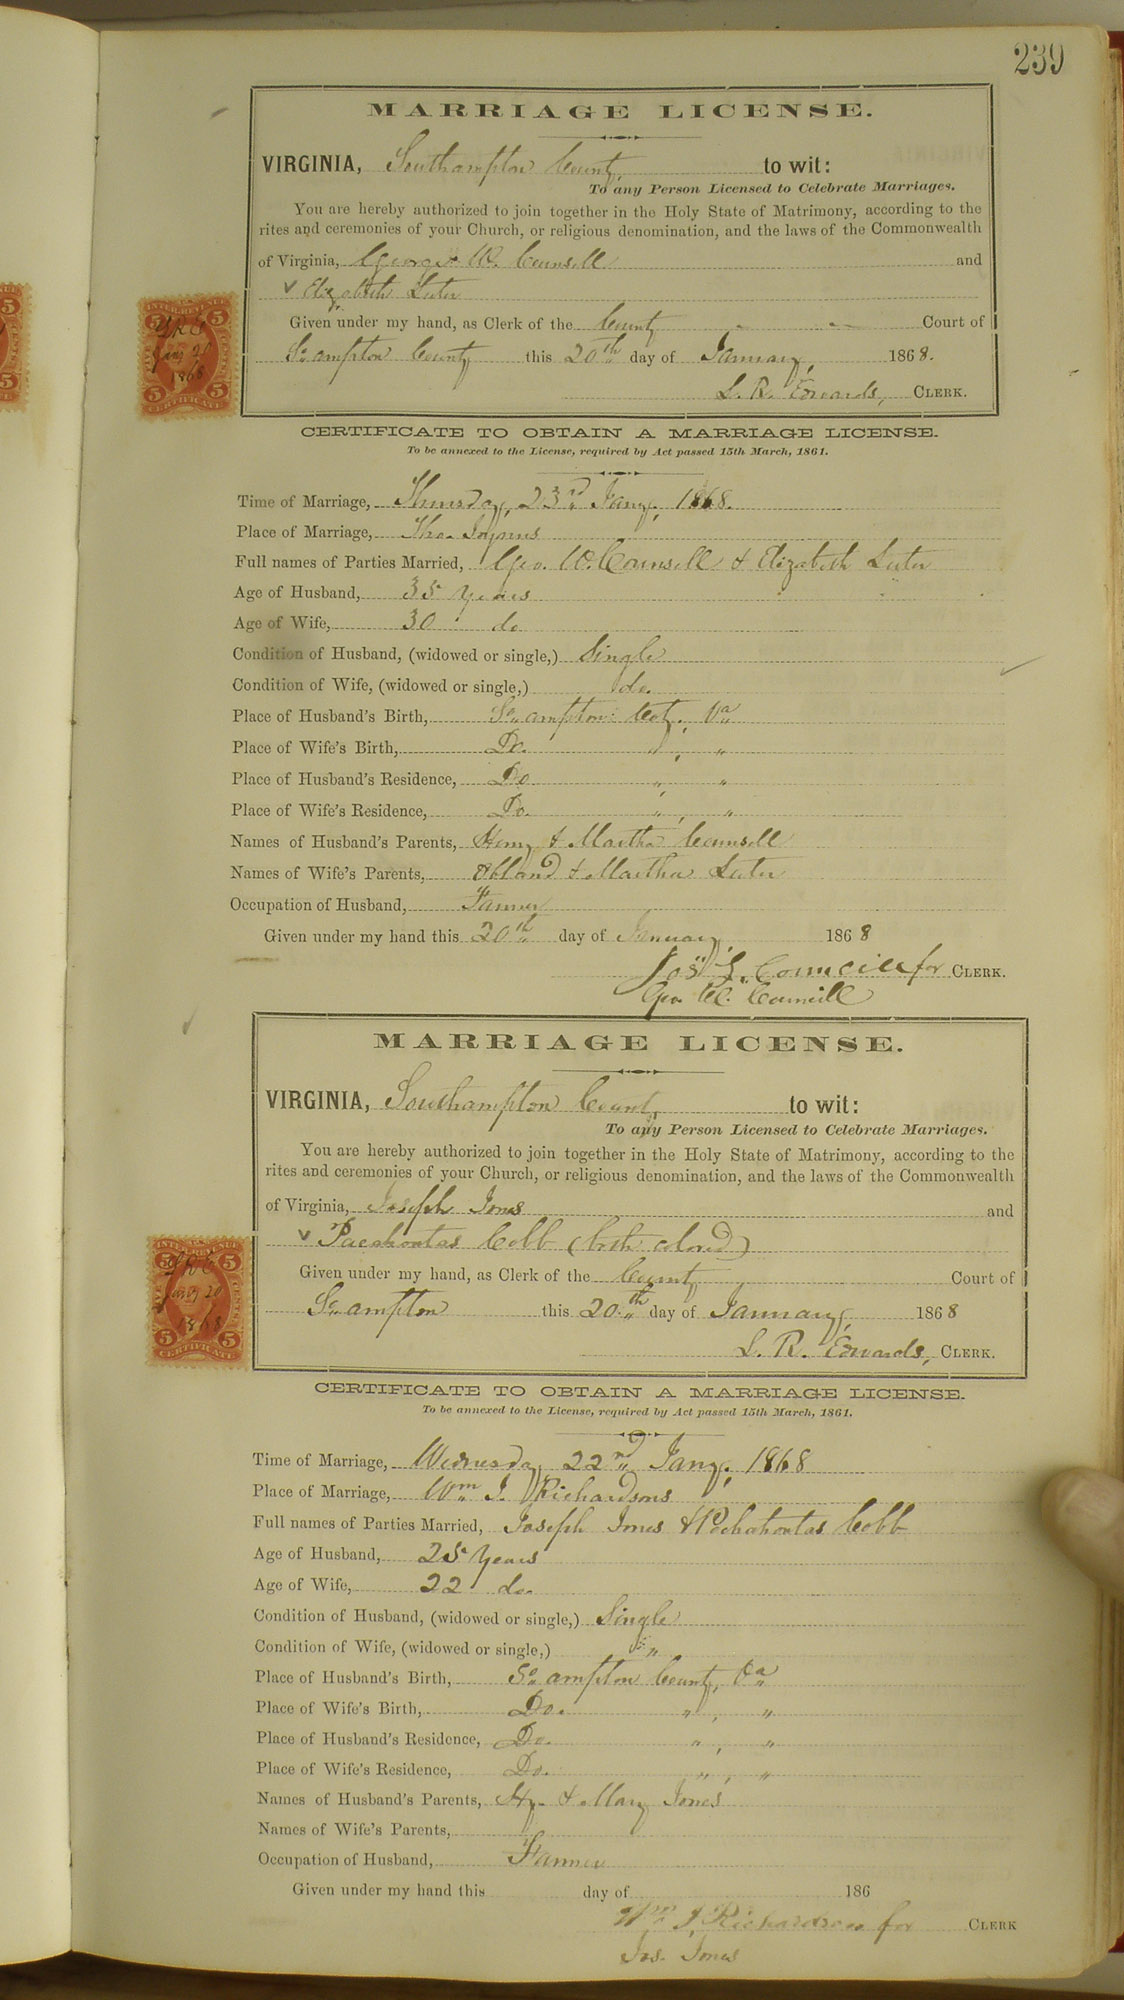 239
MARRIAGE LICENSE.
VIRGINIA, Southampton County, to wit:
To any Person Licensed to Celebrate Marriages.
You are hereby authorized to join together in the Holy State of Matrimony, according to the
rites and ceremonies of your Church, or religious denomination, and the laws of the Commonwealth
of Virginia, George W. Counsill and
v Elizabeth Luter
Given under my hand, as Clerk of the County Court of
So,,ampton County this 20th day of January, 1868.
L. R. Edwards, CLERK.
INTER. REVENUE
5 5
LRE
Jany 20
1868
5 5
CERTIFICATE
CERTIFICATE TO OBTAIN A MARRIAGE LICENSE.
To be annexed to the License, required by Act passed 15th March, 1861.
Time of Marriage, Thursday, 23rd Jany, 1868.
Place of Marriage, Tho.
Full names of Parties Married, Geo. W. Counsill & Elizabeth Luter
Age of Husband, 35 years
Age of Wife, 30 do
Condition of Husband, (widowed or single,) Single
Condition of Wife, (widowed or single,) do.
Place of Husband's Birth, So,,ampton Coty, Va
Place of Wife's Birth, Do. " , "
Place of Husband's Residence, Do " , "
Place of Wife's Residence, Do. " , "
Names of Husband's Parents, Henry & Martha Counsill
Names of Wife's Parents, & Martha Luter
Occupation of Husband, Farmer
Given under my hand this 20th day of January, 1868
Jos. L. Councill for CLERK.
Geo. W. Councill
MARRIAGE LICENSE.
VIRGINIA, Southampton County, to wit:
To any Person Licensed to Celebrate Marriages.
You are hereby authorized to join together in the Holy State of Matrimony, according to the
rites and ceremonies of your Church, or religious denomination, and the laws of the Commonwealth
of Virginia, Joseph Jones and
v Pacahontas Cobb (both colored)
Given under my hand, as Clerk of the County Court of
So,,ampton this 20th day of January, 1868
L. R. Edwards, CLERK.
INTER. REVENUE
5 5
LRE
Jany 20
1868
5 5
CERTIFICATE
CERTIFICATE TO OBTAIN A MARRIAGE LICENSE.
To be annexed to the License, required by Act passed 15th March, 1861.
Time of Marriage, Wednesday, 22nd Jany, 1868
Place of Marriage, Wm J. Richardsons
Full names of Parties Married, Joseph Jones & Pochahontas Cobb
Age of Husband, 25 years
Age of Wife, 22 do.
Condition of Husband, (widowed or single,) Single
Condition of Wife, (widowed or single,) "
Place of Husband's Birth, So,,ampton County, Va
Place of Wife's Birth, Do. " , "
Place of Husband's Residence, Do. " , "
Place of Wife's Residence, Do. " , "
Names of Husband's Parents, Hy. & Mary Jones
Names of Wife's Parents,
Occupation of Husband, Farmer
Given under my hand this day of 186
Wm J. Richardson for CLERK
Jos. Jones